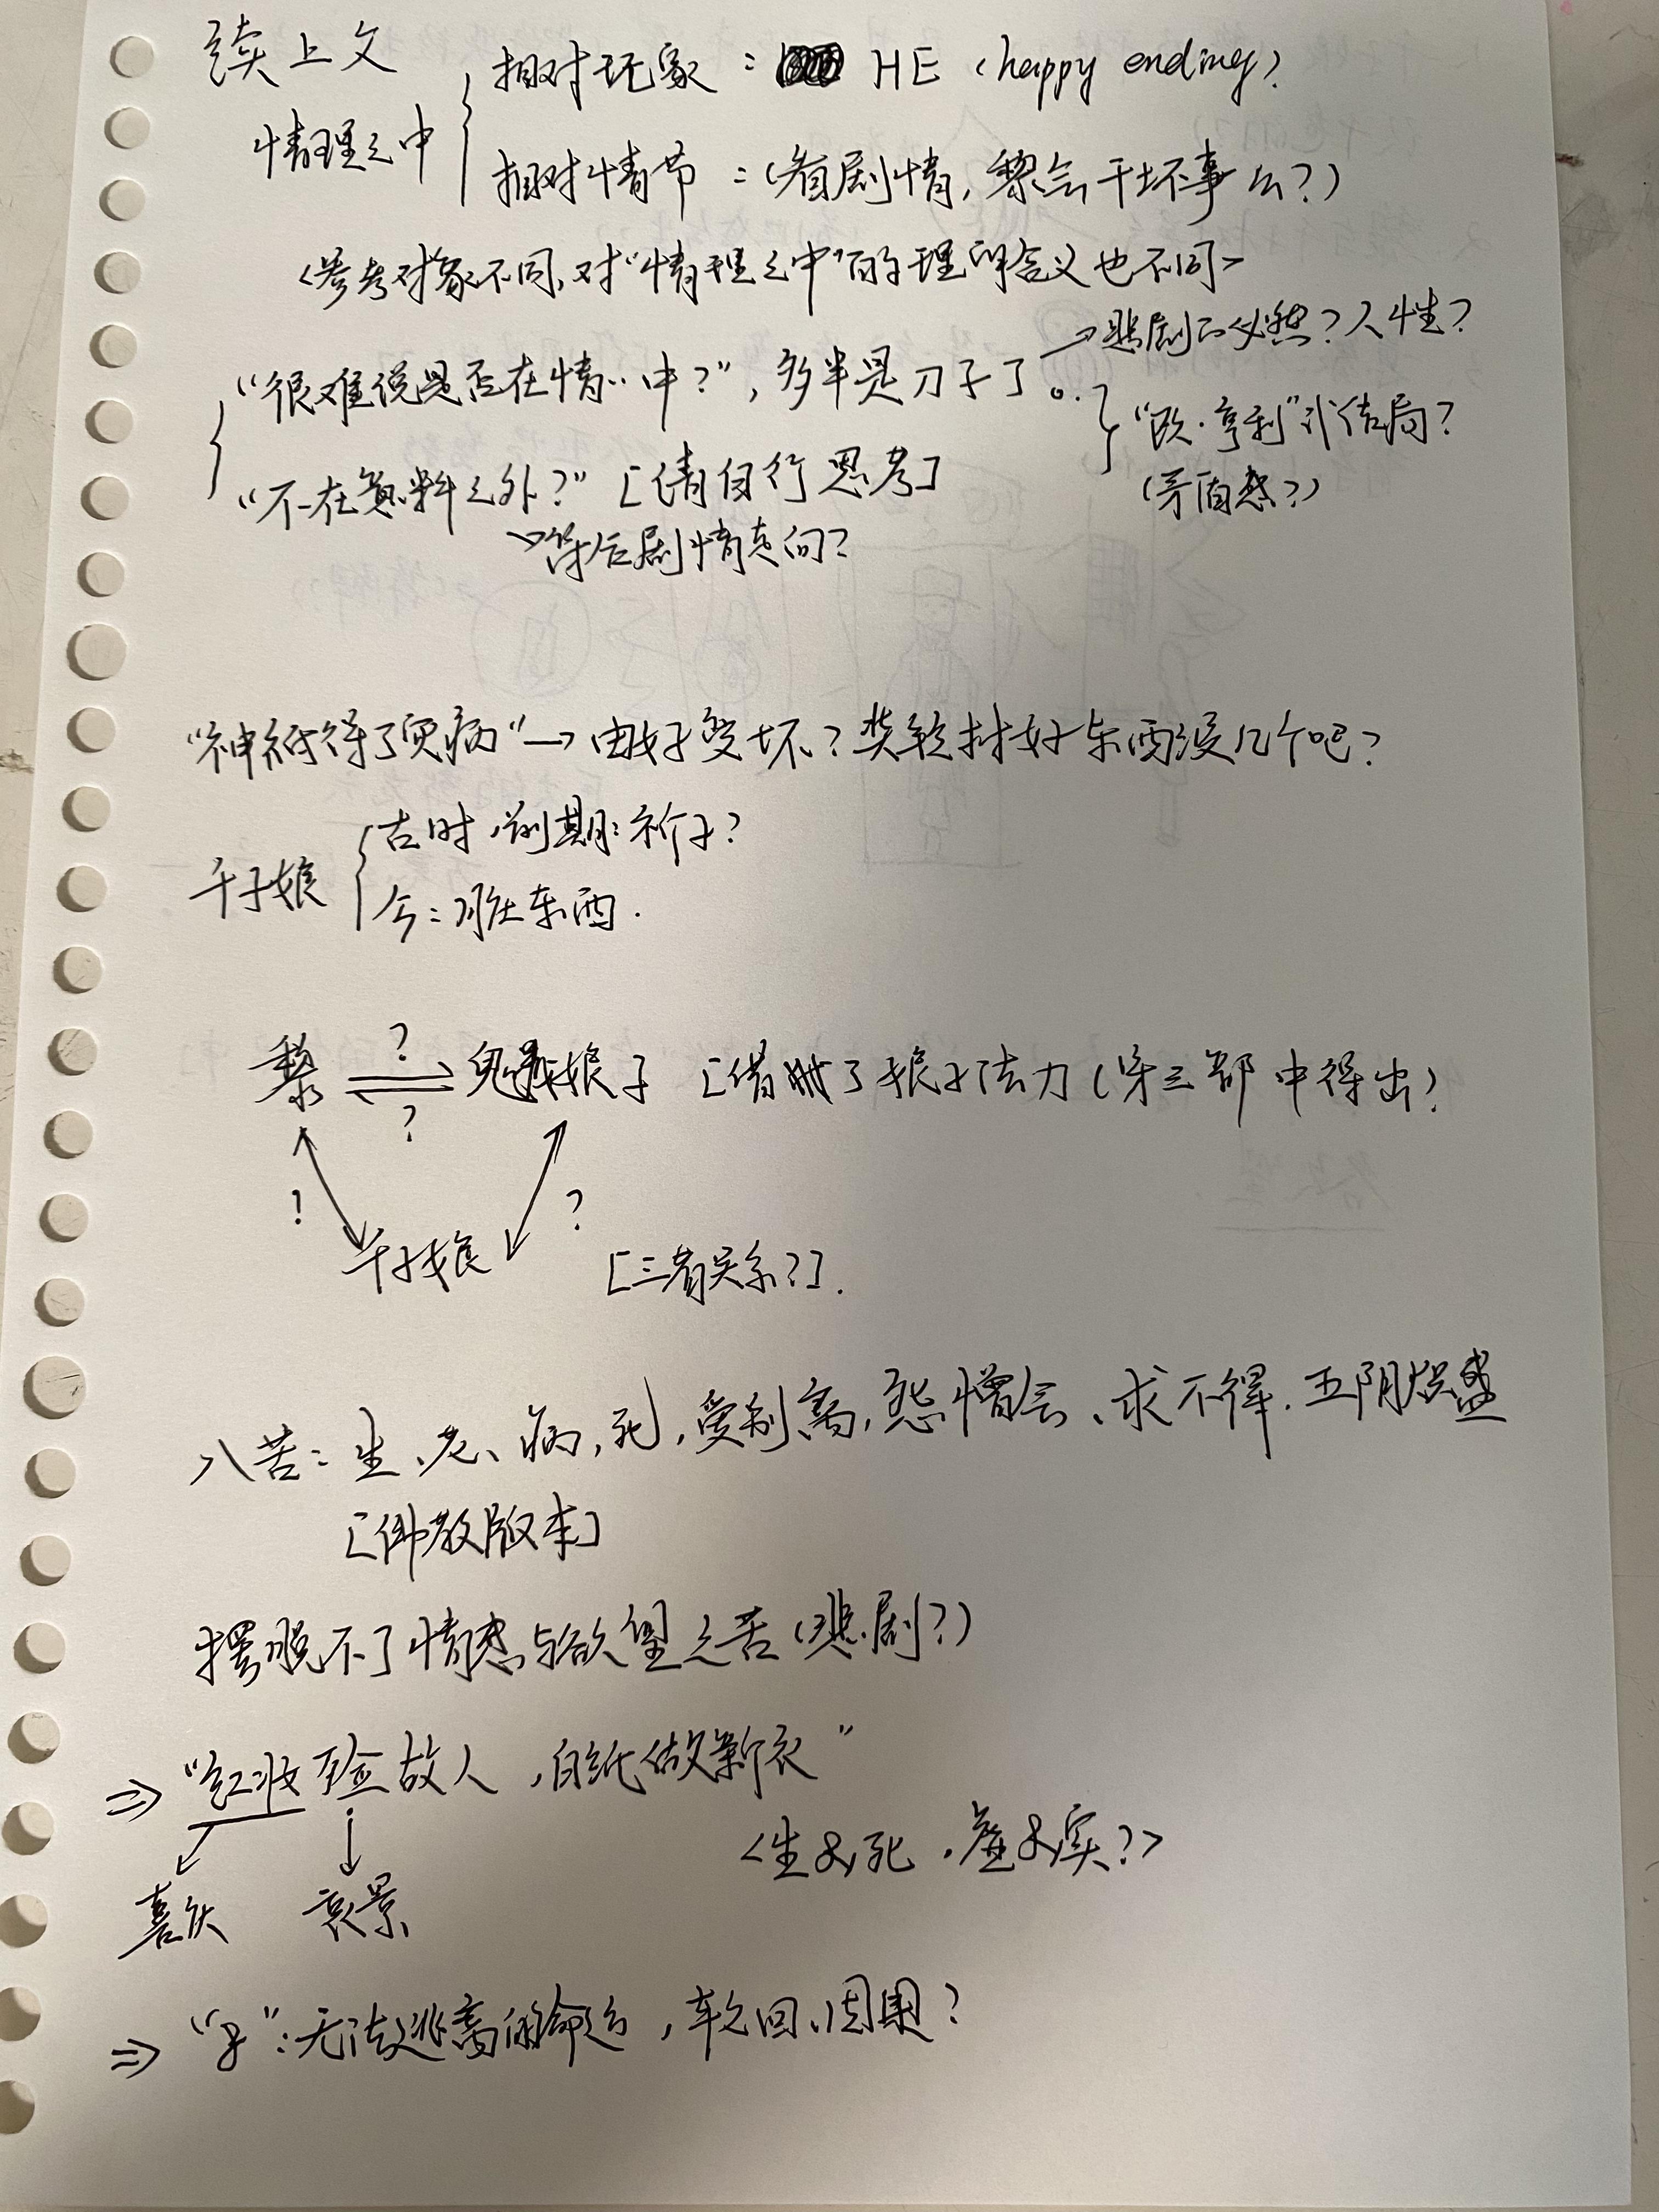 续上文
相对玩家：HE（happy ending）
情理之中
相对情节：（看剧情，黎会干坏事么？）
<参考对象不同，对“情理之中”的理解含义也不同>
→悲剧的必然？人性？
“很难说是否在情‥中？”，多半是刀子了。
“欧·亨利”式结局？
（矛盾感？）
“不在意料之外？”[请自行思考]
→符合剧情走向？
“神祇得了疾病”→由好变坏？奘铃村好东西没几个吧？
古时，前期：祈子？
千子娘
今：脏东西.
?
黎 鬼娘子 [借助了娘子法力（第三部中得出）
?
! ?
千子娘 [三者关系？].
八苦：生、老、病，死，爱别离，怨憎会、求不得.五阴炽盛
[佛教版本]
摆脱不了情感与欲望之苦（悲剧？）
⇒“红妆殓故人，白纸做新衣”
<生&死，虚&实？>
喜庆 哀景
⇒“8”：无法逃离的命运，轮回、因果？